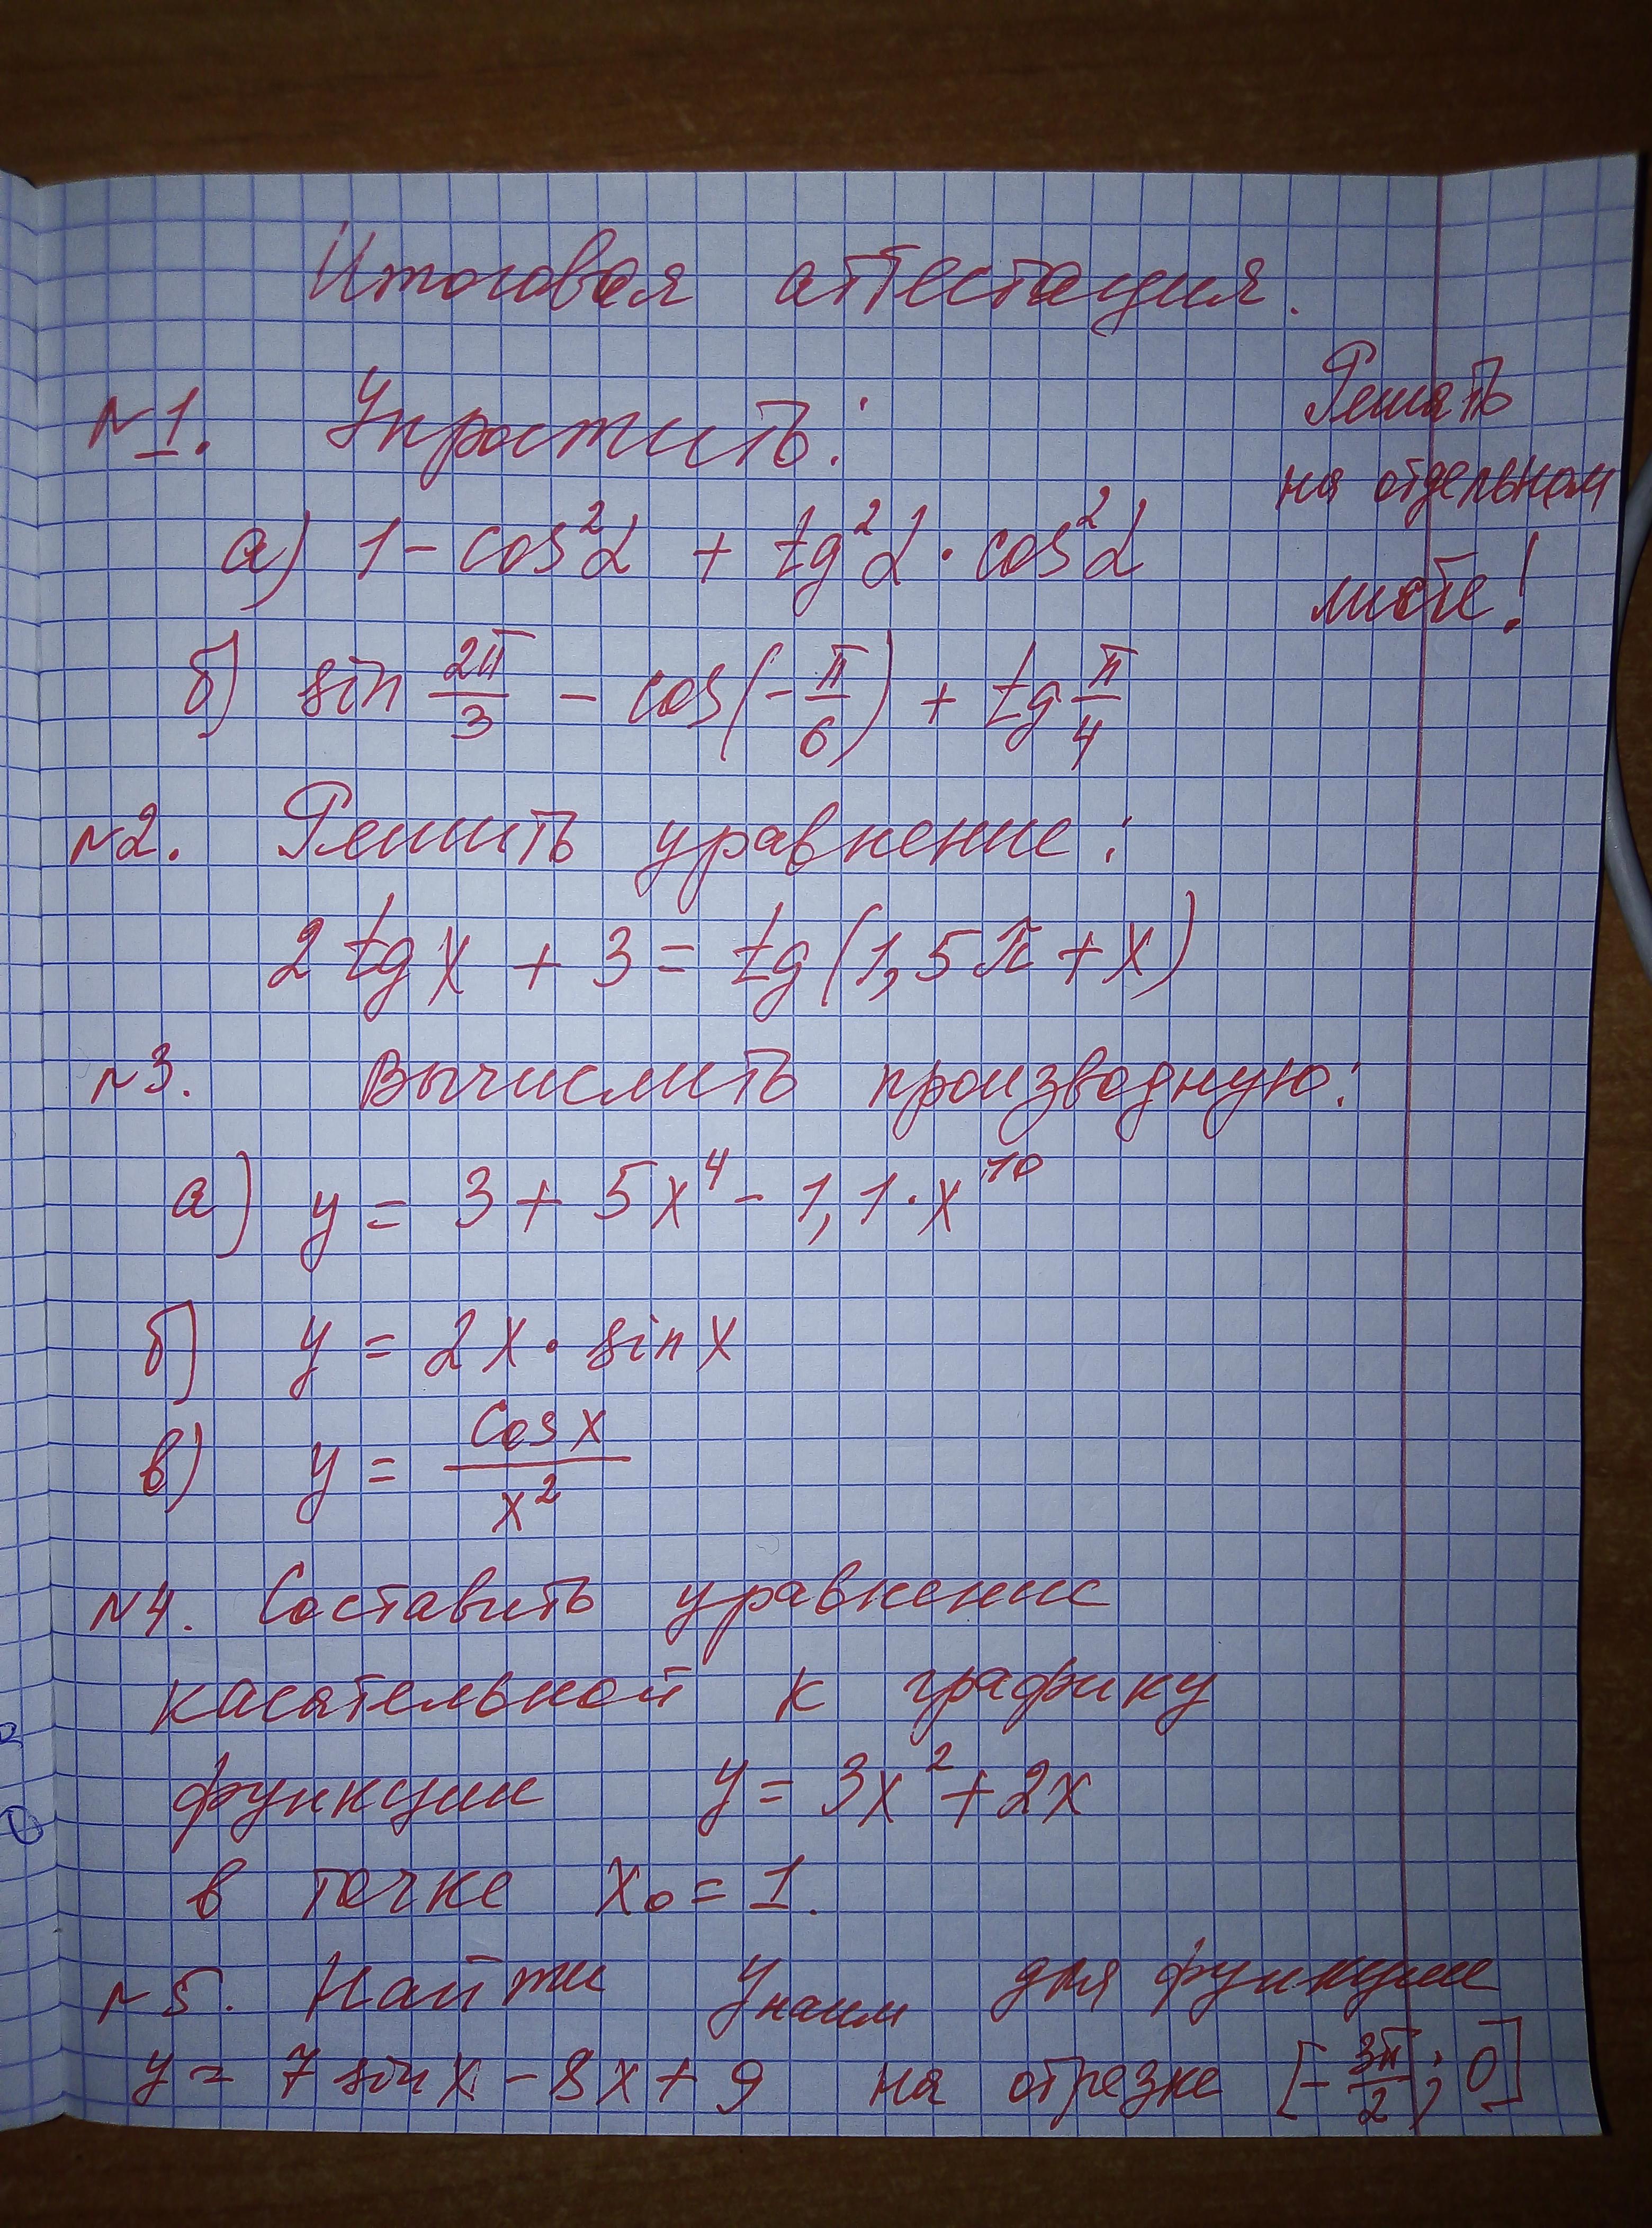 Итоговая аттестация.
Решать
на отдельном
листе!
№1. Упростить:
а) 1 - cos²α + tg²α · cos²α
б) sin 2π/3 - cos(-π/6) + tg π/4
№2. Решить уравнение:
2 tg x + 3 = tg(1,5π + x)
№3. Вычислить производную:
а) y = 3 + 5x⁴ - 1,1 · x¹⁰
б) y = 2x · sin x
в) y = cos x / x²
№4. Составить уравнение
касательной к графику
функции y = 3x² + 2x
в точке x₀ = 1.
№5. Найти yнаим для функции
y = 7 sin x - 8x + 9 на отрезке [-3π/2; 0]